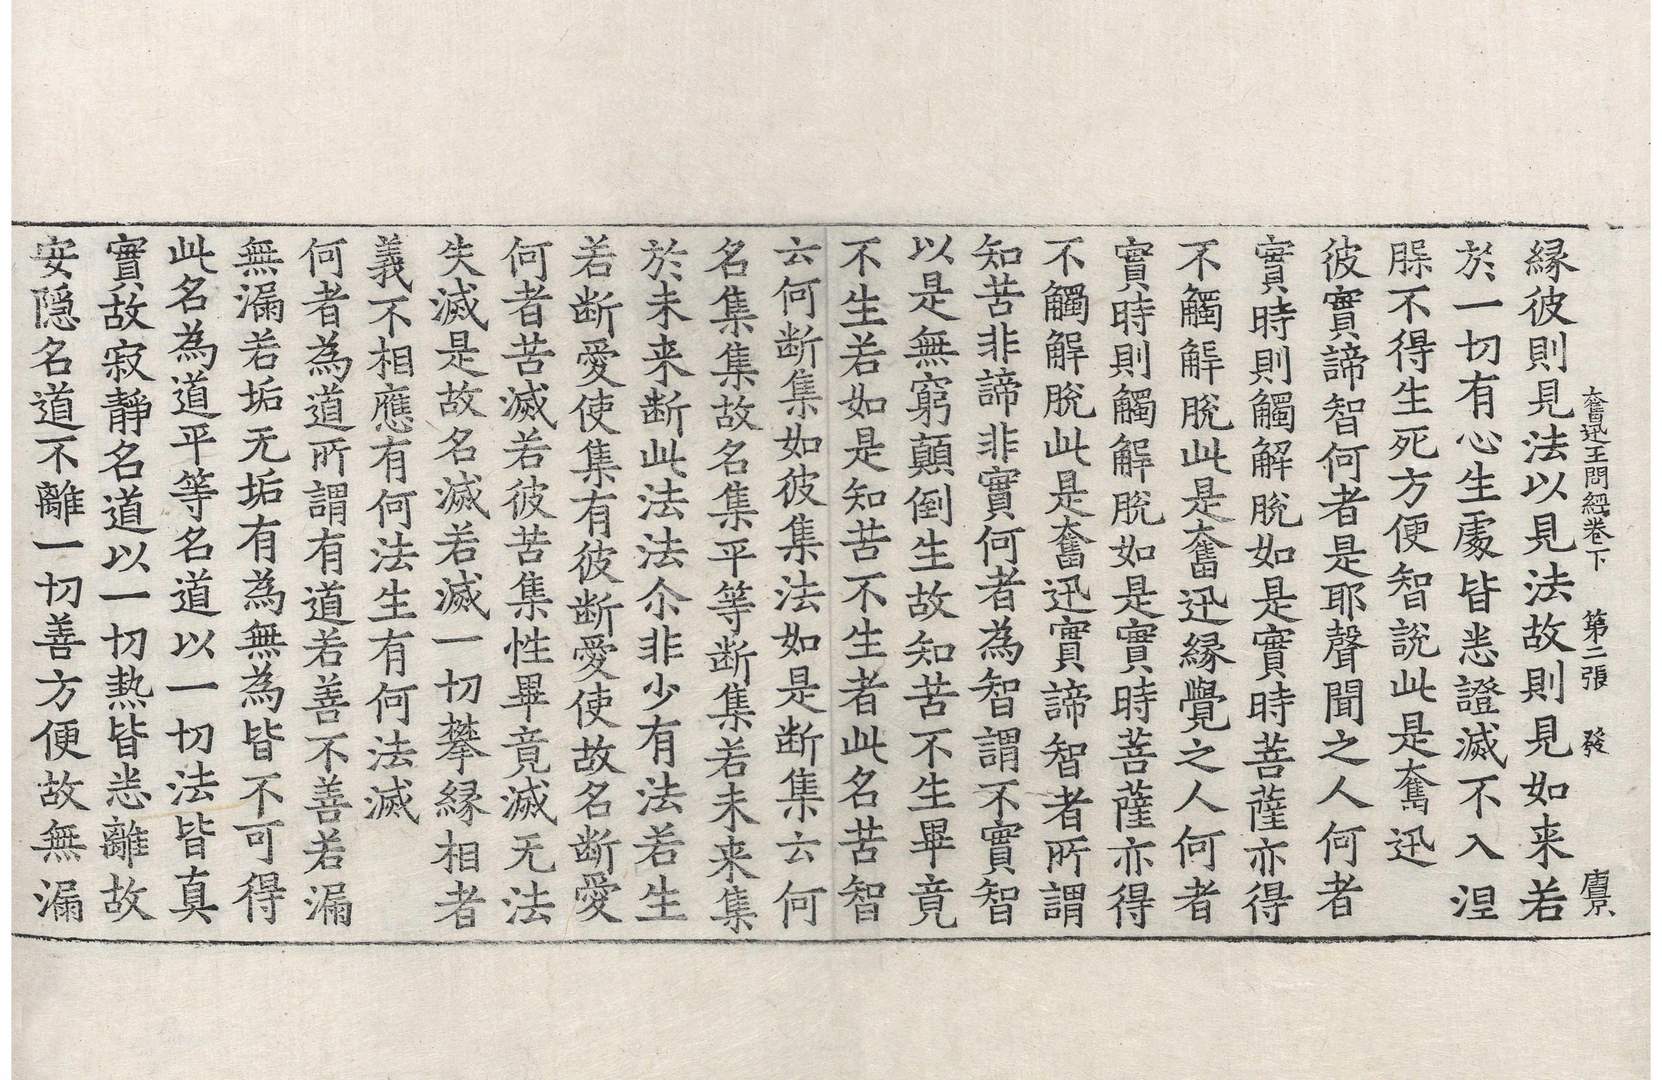 奮迅王問經卷下 第二張 發
緣彼則見法以見法故則見如来若
於一切有心生處皆悉證滅不入涅
槃不得生死方便智說此是奮迅
彼實諦智何者是耶聲聞之人何者
實時則觸解脫如是實時菩薩亦得
不觸解脫此是奮迅緣覺之人何者
實時則觸解脫如是實時菩薩亦得
不觸解脫此是奮迅實諦智者所謂
知苦非諦非實何者為智謂不實智
以是無窮顛倒生故知苦不生畢竟
不生若如是知苦不生者此名苦智
云何断集如彼集法如是断集云何
名集集故名集平等断集若未来集
於未来断此法法尒非少有法若生
若断愛使集有彼断愛使故名断愛
何者苦滅若彼苦集性畢竟滅无法
失滅是故名滅若滅一切攀緣相者
義不相應有何法生有何法滅
何者為道所謂有道若善不善若漏
無漏若垢无垢有為無為皆不可得
此名為道平等名道以一切法皆真
實故寂靜名道以一切熱皆悉離故
安隱名道不離一切善方便故無漏